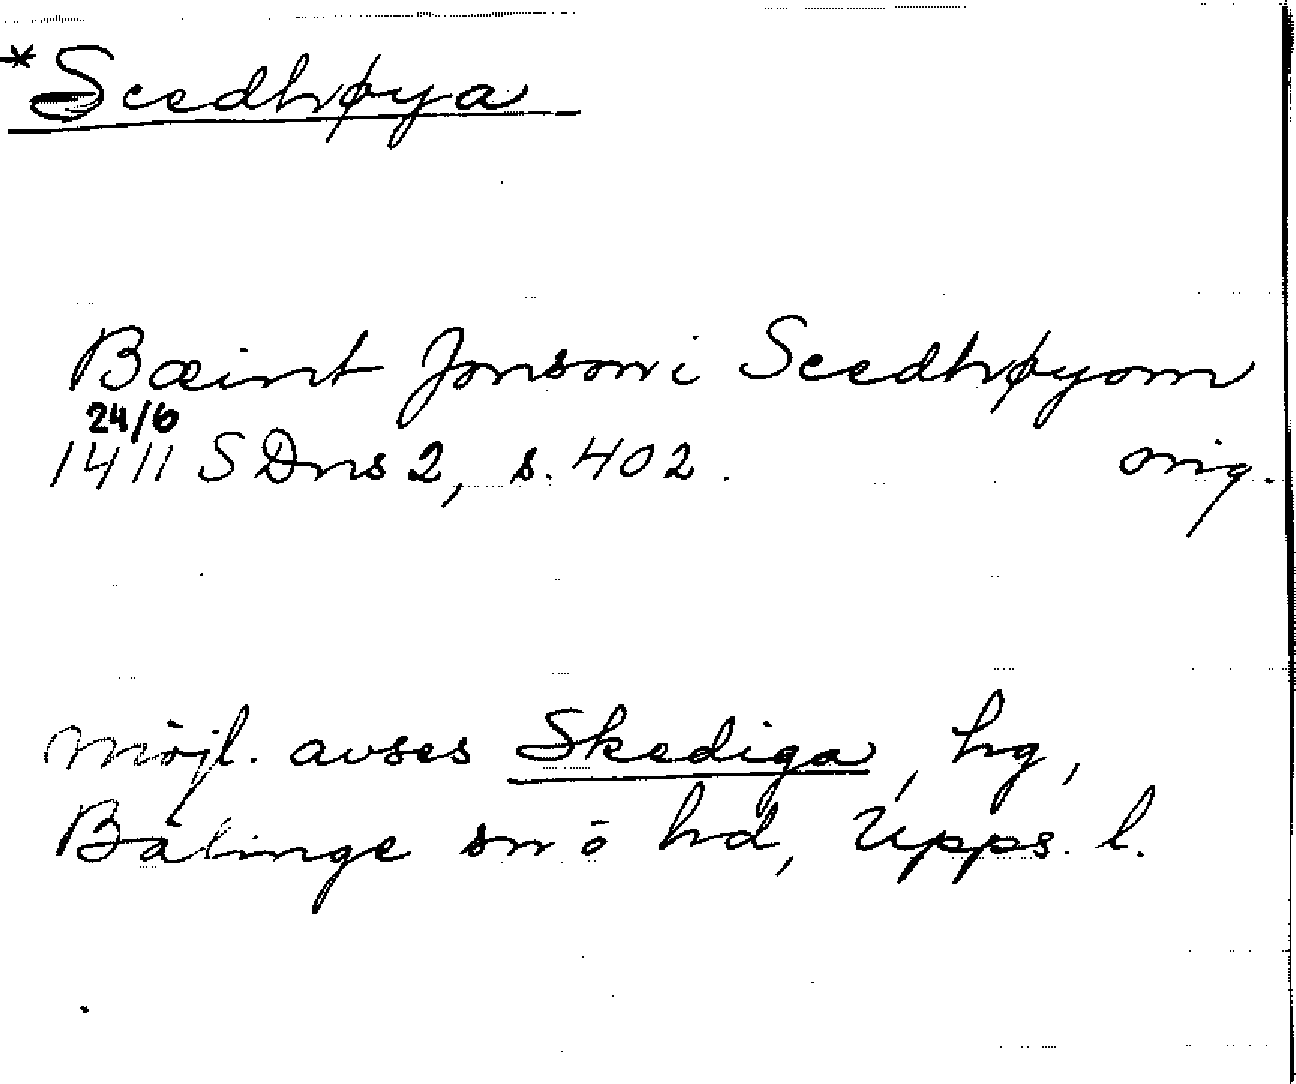 *Scedhøya
Bæint Jonson i Scedhøyom
24/6
1411 SDns 2, s. 402. orig.
möjl. avses Skediga, hg,
Bälinge sn o hd, Upps. l.